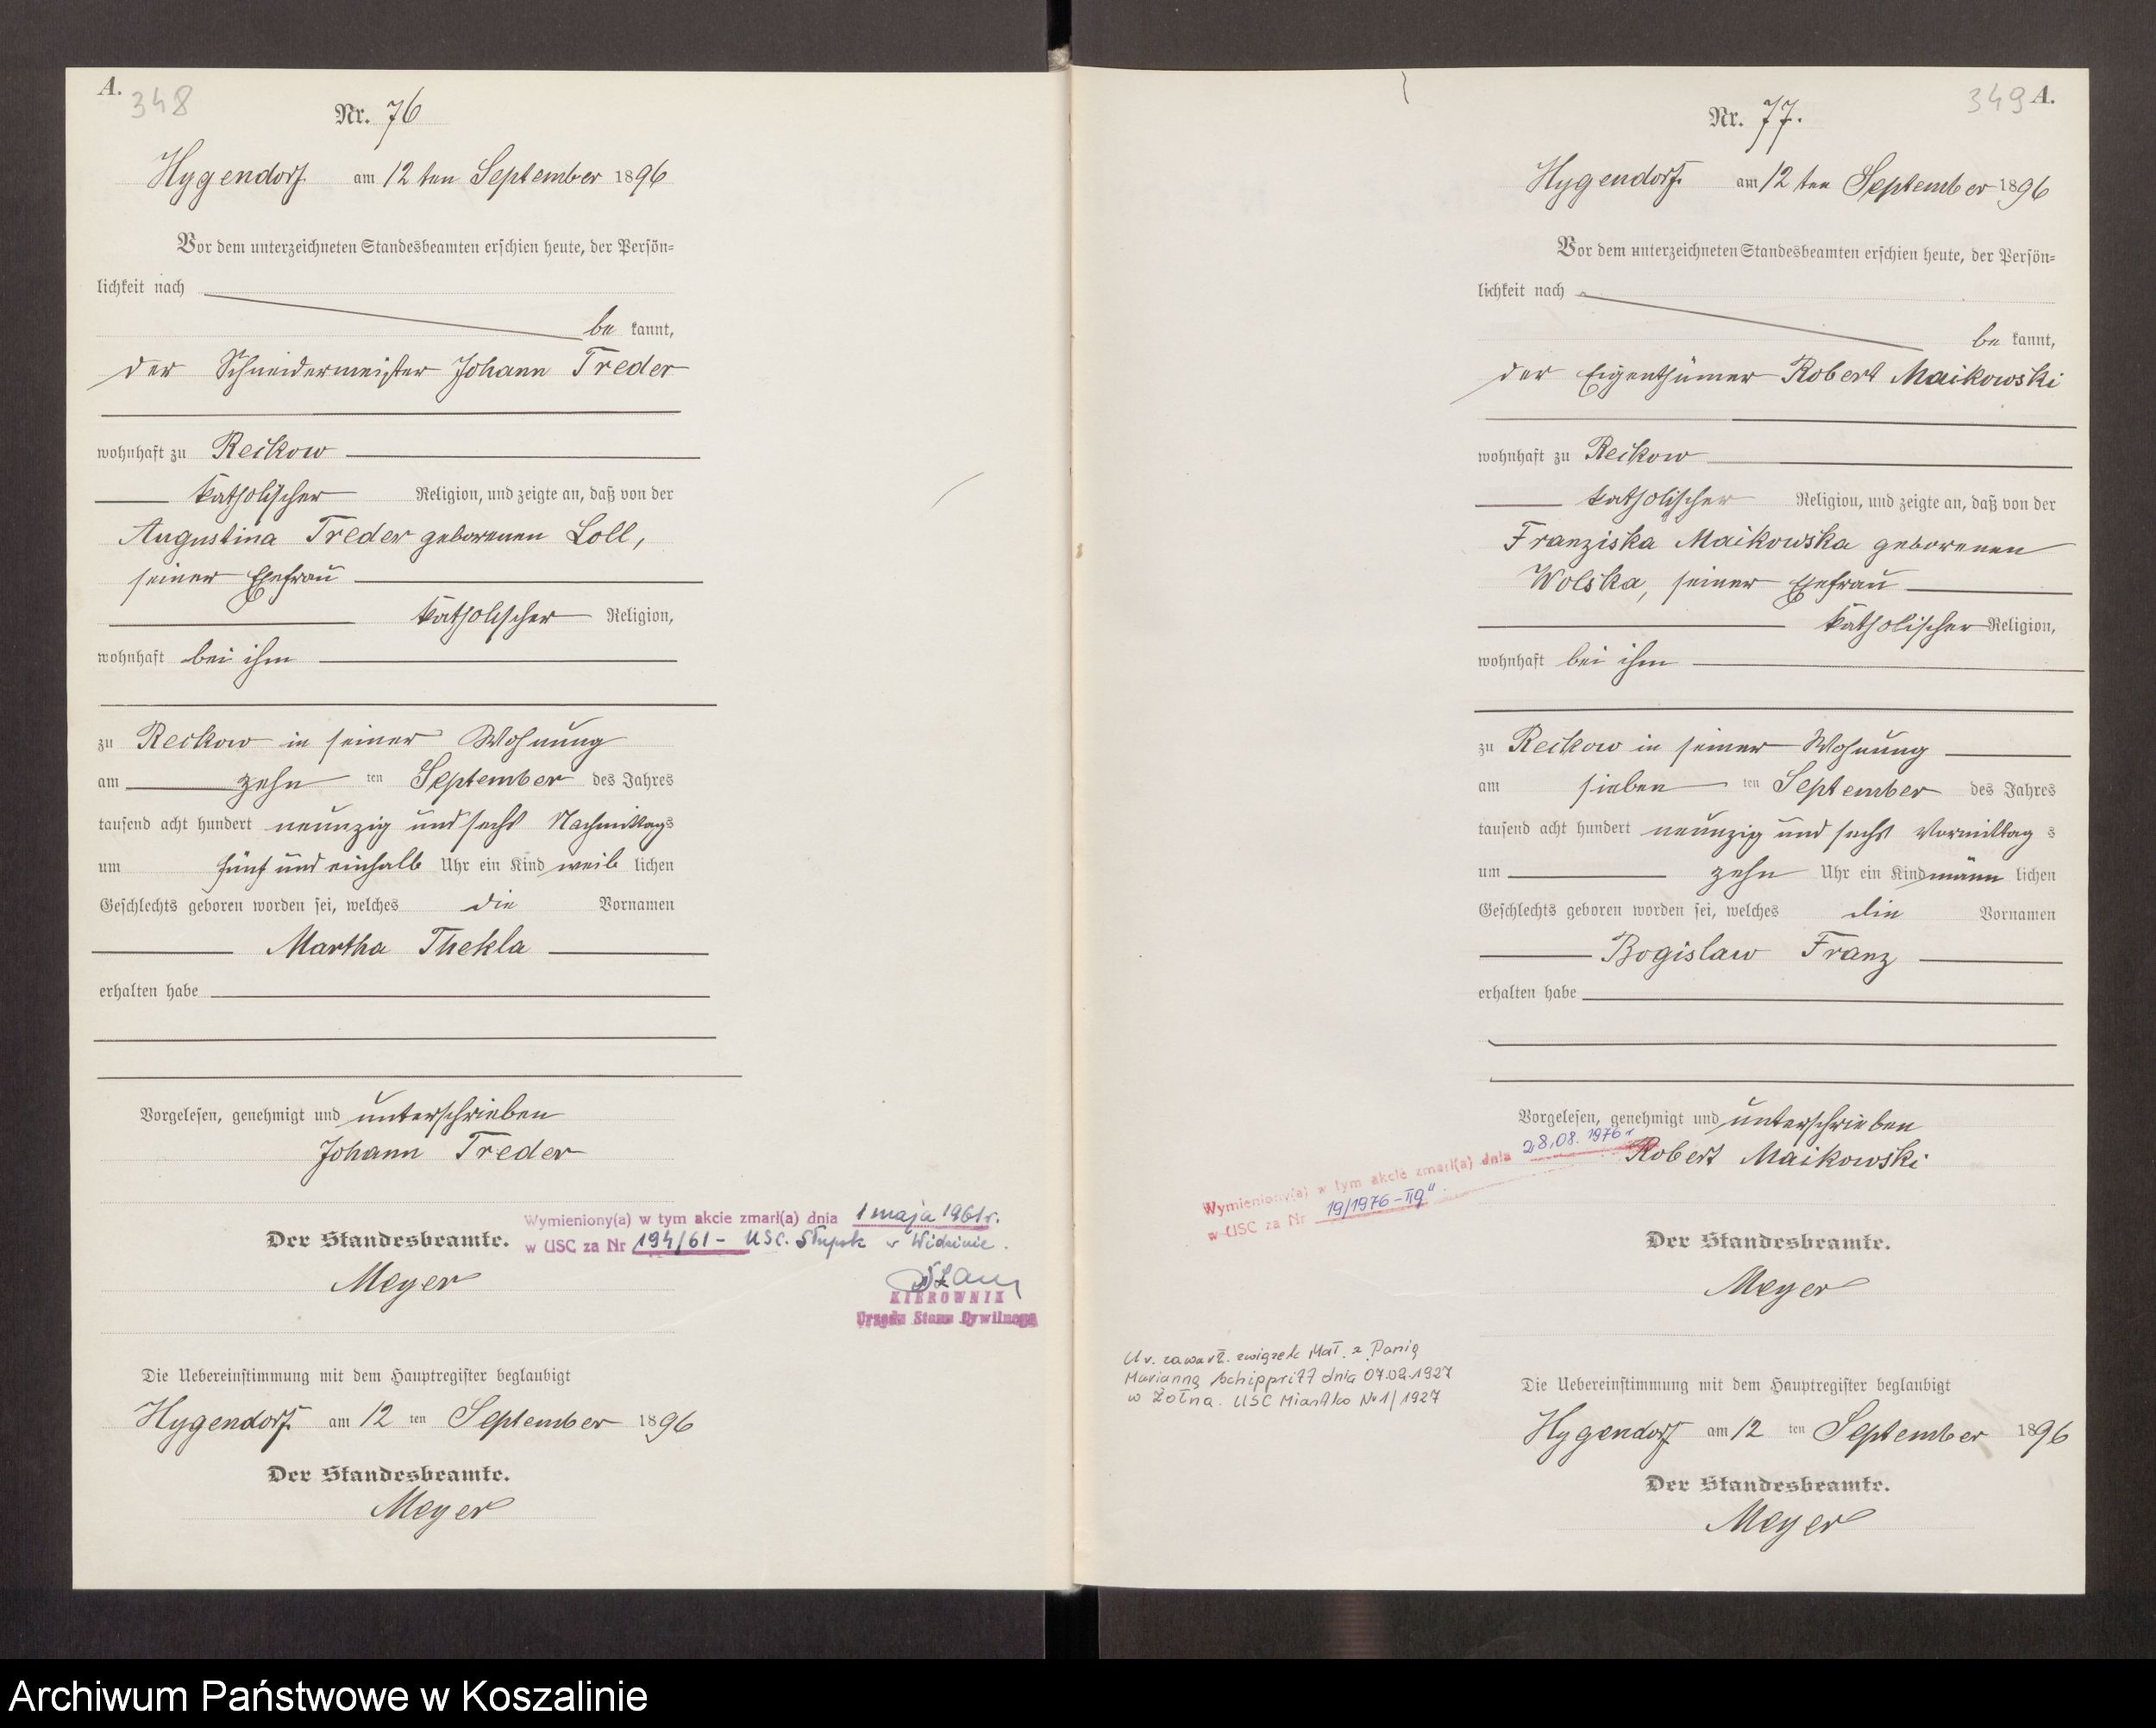 A.
348
Nr. 76
Hygendorf am 12 ten September 1896
Vor dem unterzeichneten Standesbeamten erschien heute, der Persön-
lichkeit nach
be kannt,
der Schneidermeister Johann Treder
wohnhaft zu Reckow
katholischer Religion, und zeigte an, daß von der
Augustina Treder geborenen Loll,
seiner Ehefrau
katholischer Religion,
wohnhaft bei ihm
zu Reckow in seiner Wohnung
am zehn ten September des Jahres
tausend acht hundert neunzig und sechs Nachmittags
um fünf und einhalb Uhr ein Kind weib lichen
Geschlechts geboren worden sei, welches die Vornamen
Martha Thekla
erhalten habe
Vorgelesen, genehmigt und unterschrieben
Johann Treder
Wymieniony(a) w tym akcie zmarł(a) dnia 1 maja 1961r.
w USC za Nr 194/61 - USC. Słupsk w Widzinie.
Der Standesbeamte.
Meyer
KIEROWNIK
Urzędu Stanu Cywilnego
Die Uebereinstimmung mit dem Hauptregister beglaubigt
Hygendorf am 12 ten September 1896
Der Standesbeamte.
Meyer
349 A.
Nr. 77.
Hygendorf am 12 ten September 1896
Vor dem unterzeichneten Standesbeamten erschien heute, der Persön-
lichkeit nach
be kannt,
der Eigenthümer Robert Maikowski
wohnhaft zu Reckow
katholischer Religion, und zeigte an, daß von der
Franziska Maikowska geborenen
Wolska, seiner Ehefrau
katholischer Religion,
wohnhaft bei ihm
zu Reckow in seiner Wohnung
am sieben ten September des Jahres
tausend acht hundert neunzig und sechs Vormittag s
um zehn Uhr ein Kind männ lichen
Geschlechts geboren worden sei, welches die Vornamen
Bogislaw Franz
erhalten habe
Vorgelesen, genehmigt und unterschrieben
Robert Maikowski
Wymieniony(a) w tym akcie zmarł(a) dnia 28.08.1976 r
w USC za Nr 19/1976-
Der Standesbeamte.
Meyer
Uw. zawarł. związek Mał. z Panią
Marianną Schippritt dnia 07.02.1927
w Żołna. USC Miastko Nr 1/1927
Die Uebereinstimmung mit dem Hauptregister beglaubigt
Hygendorf am 12 ten September 1896
Der Standesbeamte.
Meyer
Archiwum Państwowe w Koszalinie